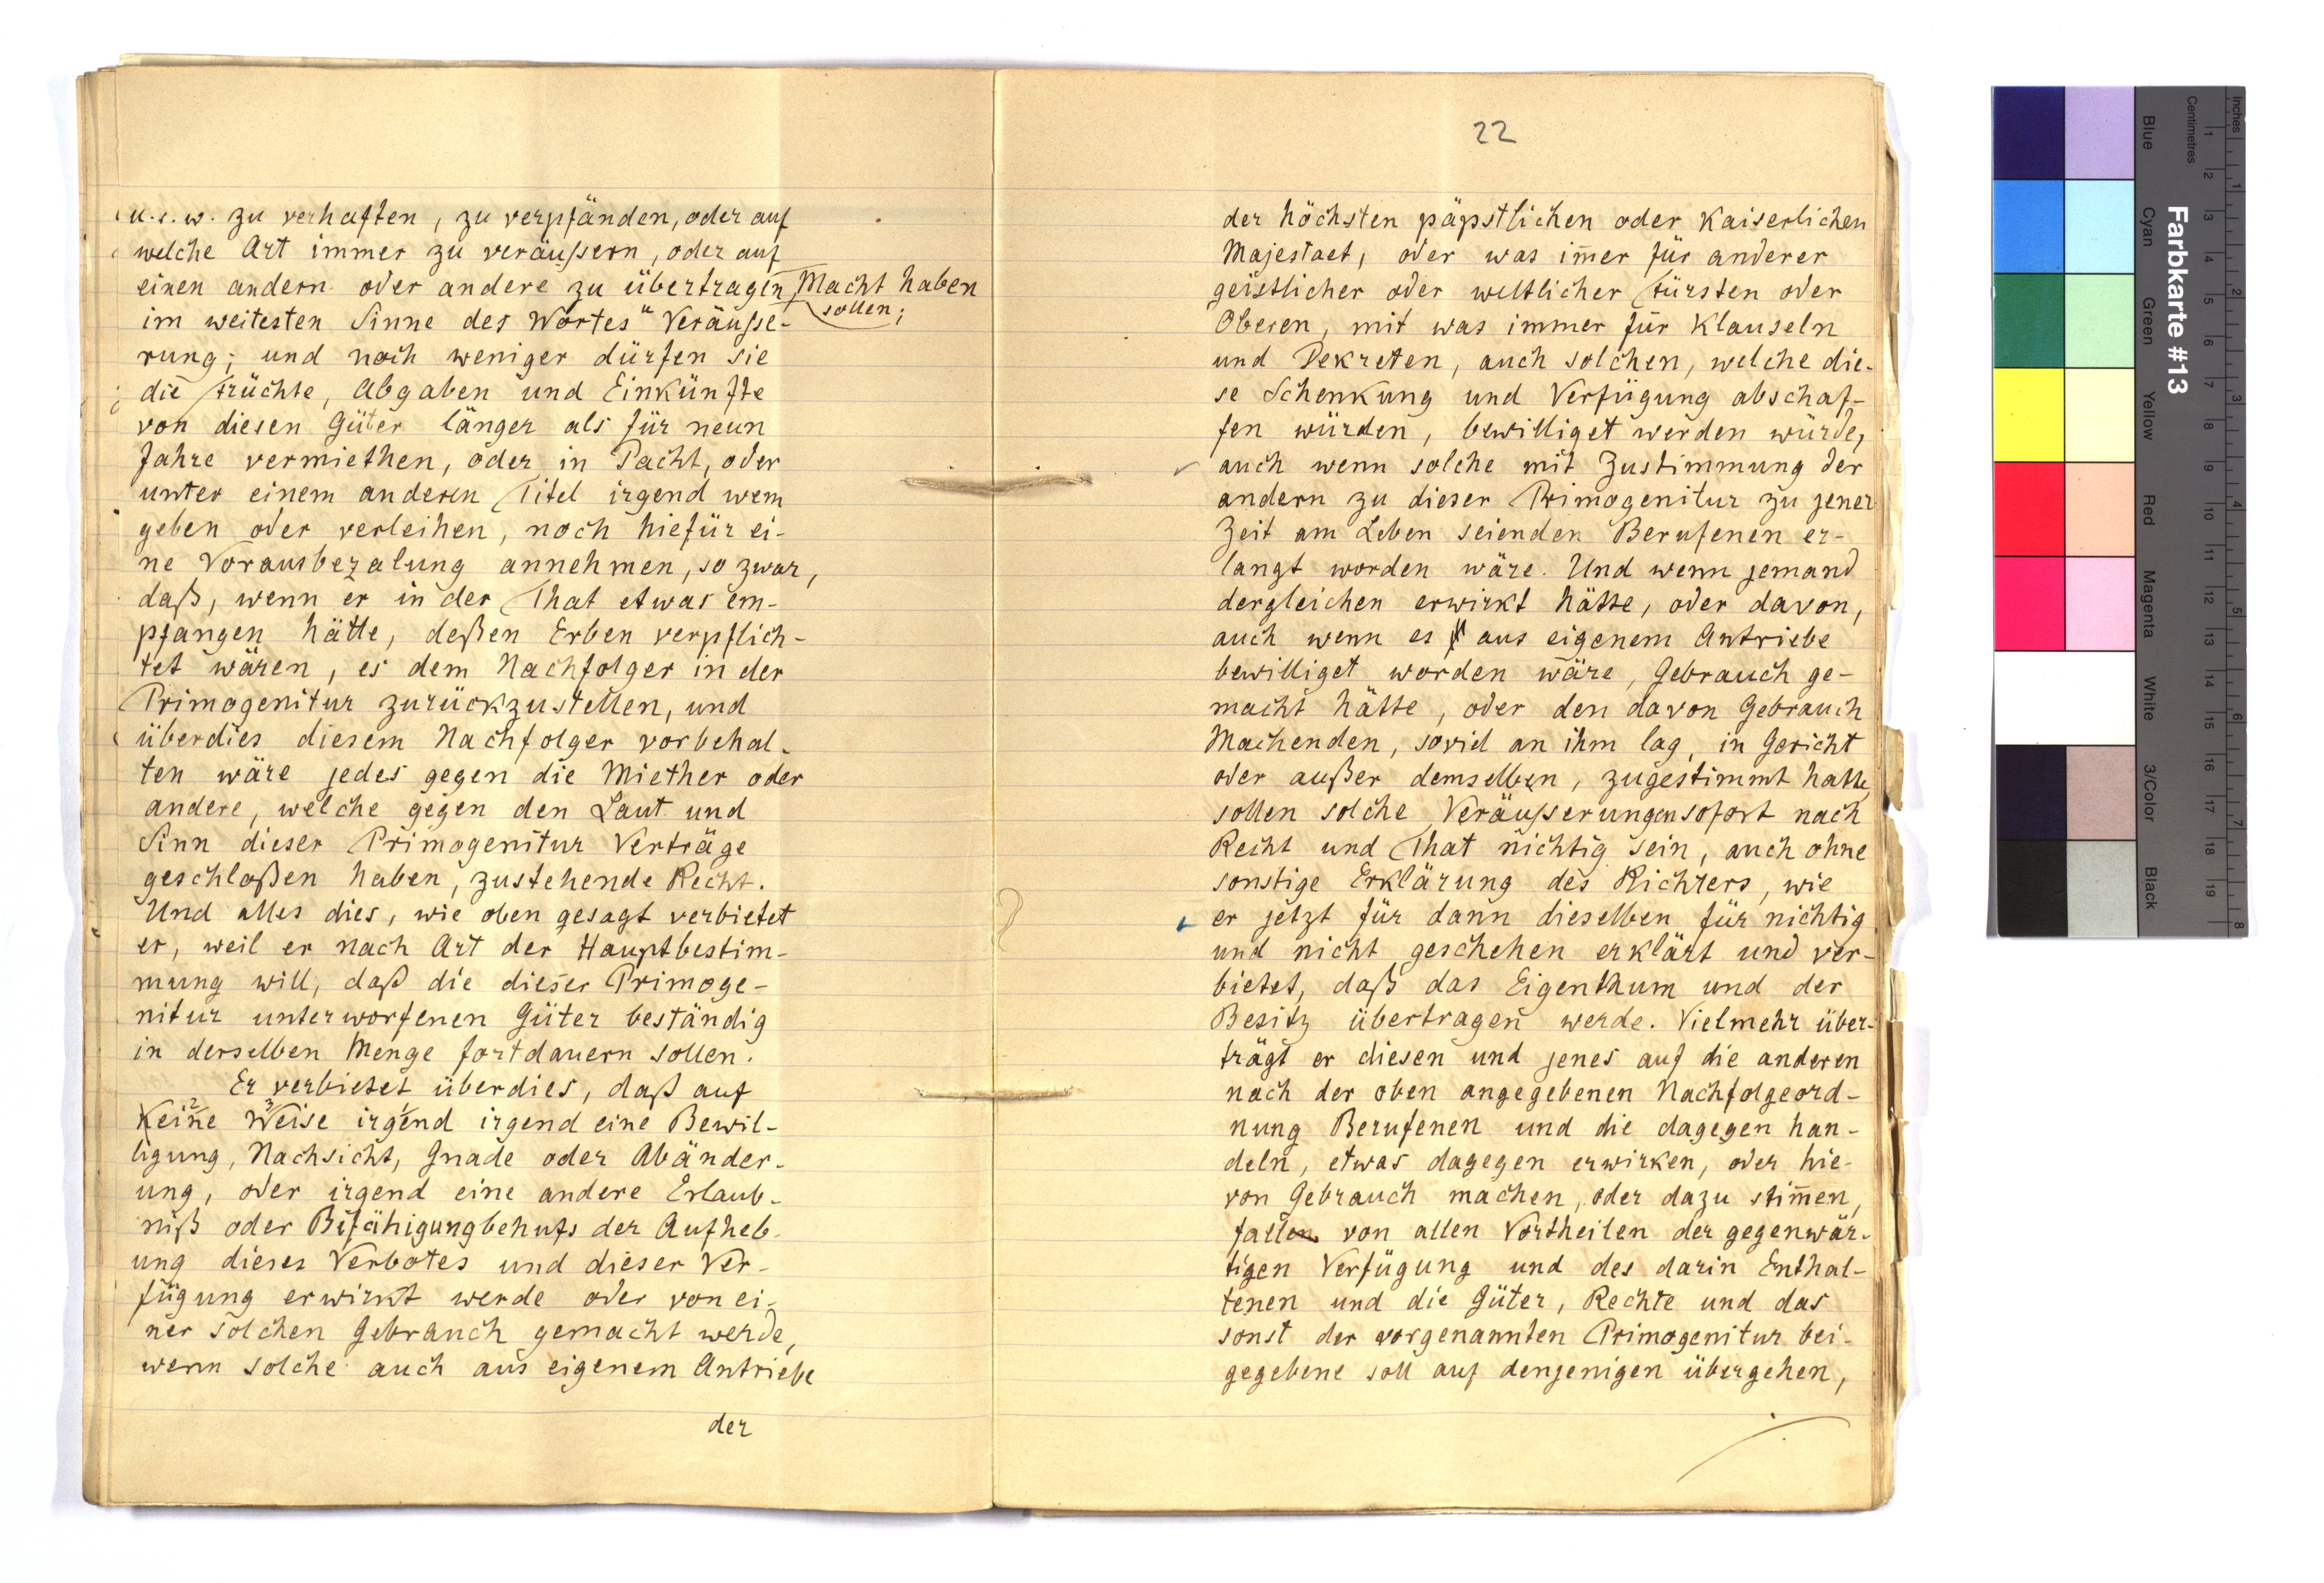 u.s.w. zu verhaften, zu verpfänden, oder auf
welche Art immer zu veräußern, oder auf
einen andern oder andere zu übertragen Macht haben
sollen;
im weitesten Sinne des Wortes "Veräuße-
rung; und noch weniger dürfen sie
die Früchte, Abgaben und Einkünfte
von diesen Güter länger als für neun
Jahre vermiethen, oder in Pacht, oder
unter einem anderen Titel irgend wem
geben oder verleihen, noch hiefür ei-
ne Vorausbezalung annehmen, so zwar,
daß, wenn er in der That etwas em-
pfangen hätte, deßen Erben verpflich-
tet wären, es dem Nachfolger in der
Primogenitur zurückzustellen, und
überdies diesem Nachfolger vorbehal-
ten wäre jedes gegen die Miether oder
andere, welche gegen den Laut und
Sinn dieser Primogenitur Verträge
geschloßen haben, zustehende Recht.
Und alles dies, wie oben gesagt verbietet
er, weil er nach Art der Hauptbestim-
mung will, daß die dieser Primoge-
nitur unterworfenen Güter beständig
in derselben Menge fortdauern sollen.
Er verbietet überdies, daß auf
2 3 1
Keine Weise irgend irgend eine Bewil-
ligung, Nachsicht, Gnade oder Abänder-
ung, oder irgend eine andere Erlaub-
niß oder Befähigung behufs der Aufheb-
ung dieses Verbotes und dieser Ver-
fügung erwirkt werde oder von ei-
ner solchen Gebrauch gemacht werde,
wenn solche auch aus eigenem Antriebe
der
22
der höchsten päpstlichen oder Kaiserlichen
Majestaet, oder was im̅er für anderer
geistlicher oder weltlicher Fürsten oder
Oberen, mit was immer für Klauseln
und Dekreten, auch solchen, welche die-
se Schenkung und Verfügung abschaf-
fen würden, bewilliget werden würde,
auch wenn solche mit Zustimmung der
andern zu dieser Primogenitur zu jener
Zeit am Leben seienden Berufenen er-
langt worden wäre. Und wenn jemand
dergleichen erwirkt hätte, oder davon,
auch wenn es aus eigenem Antriebe
bewilliget worden wäre, Gebrauch ge-
macht hätte, oder den davon Gebrauch
Machenden, soviel an ihm lag, in Gericht
oder außer demselben, zugestimmt hatte,
sollen solche Veräußerungen sofort nach
Recht und That nichtig sein, auch ohne
sonstige Erklärung des Richters, wie
er jetzt für dann dieselben für nichtig
und nicht geschehen erklärt und ver-
bietet, daß das Eigenthum und der
Besitz übertragen werde. Vielmehr über-
trägt er diesen und jenes auf die anderen
nach der oben angegebenen Nachfolgeord-
nung Berufenen und die dagegen han-
deln, etwas dagegen erwirken, oder hie-
von Gebrauch machen, oder dazu stim̅en,
fallen von allen Vortheilen der gegenwär-
tigen Verfügung und des darin Enthal-
tenen und die Güter, Rechte und das
sonst der vorgenannten Primogenitur bei-
gegebene soll auf denjenigen übergehen,
Farbkarte #13
Blue
Cyan
Green
Yellow
Red
Magenta
White
3/Color
Black
Inches
Centimetres
1
2
3
4
5
6
7
8
9
10
11
12
13
14
15
16
17
18
19
1
2
3
4
5
6
7
8